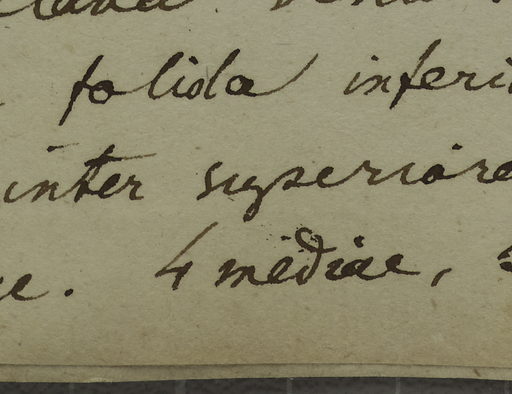 foliola inferi
inter superiore
4 mediae,